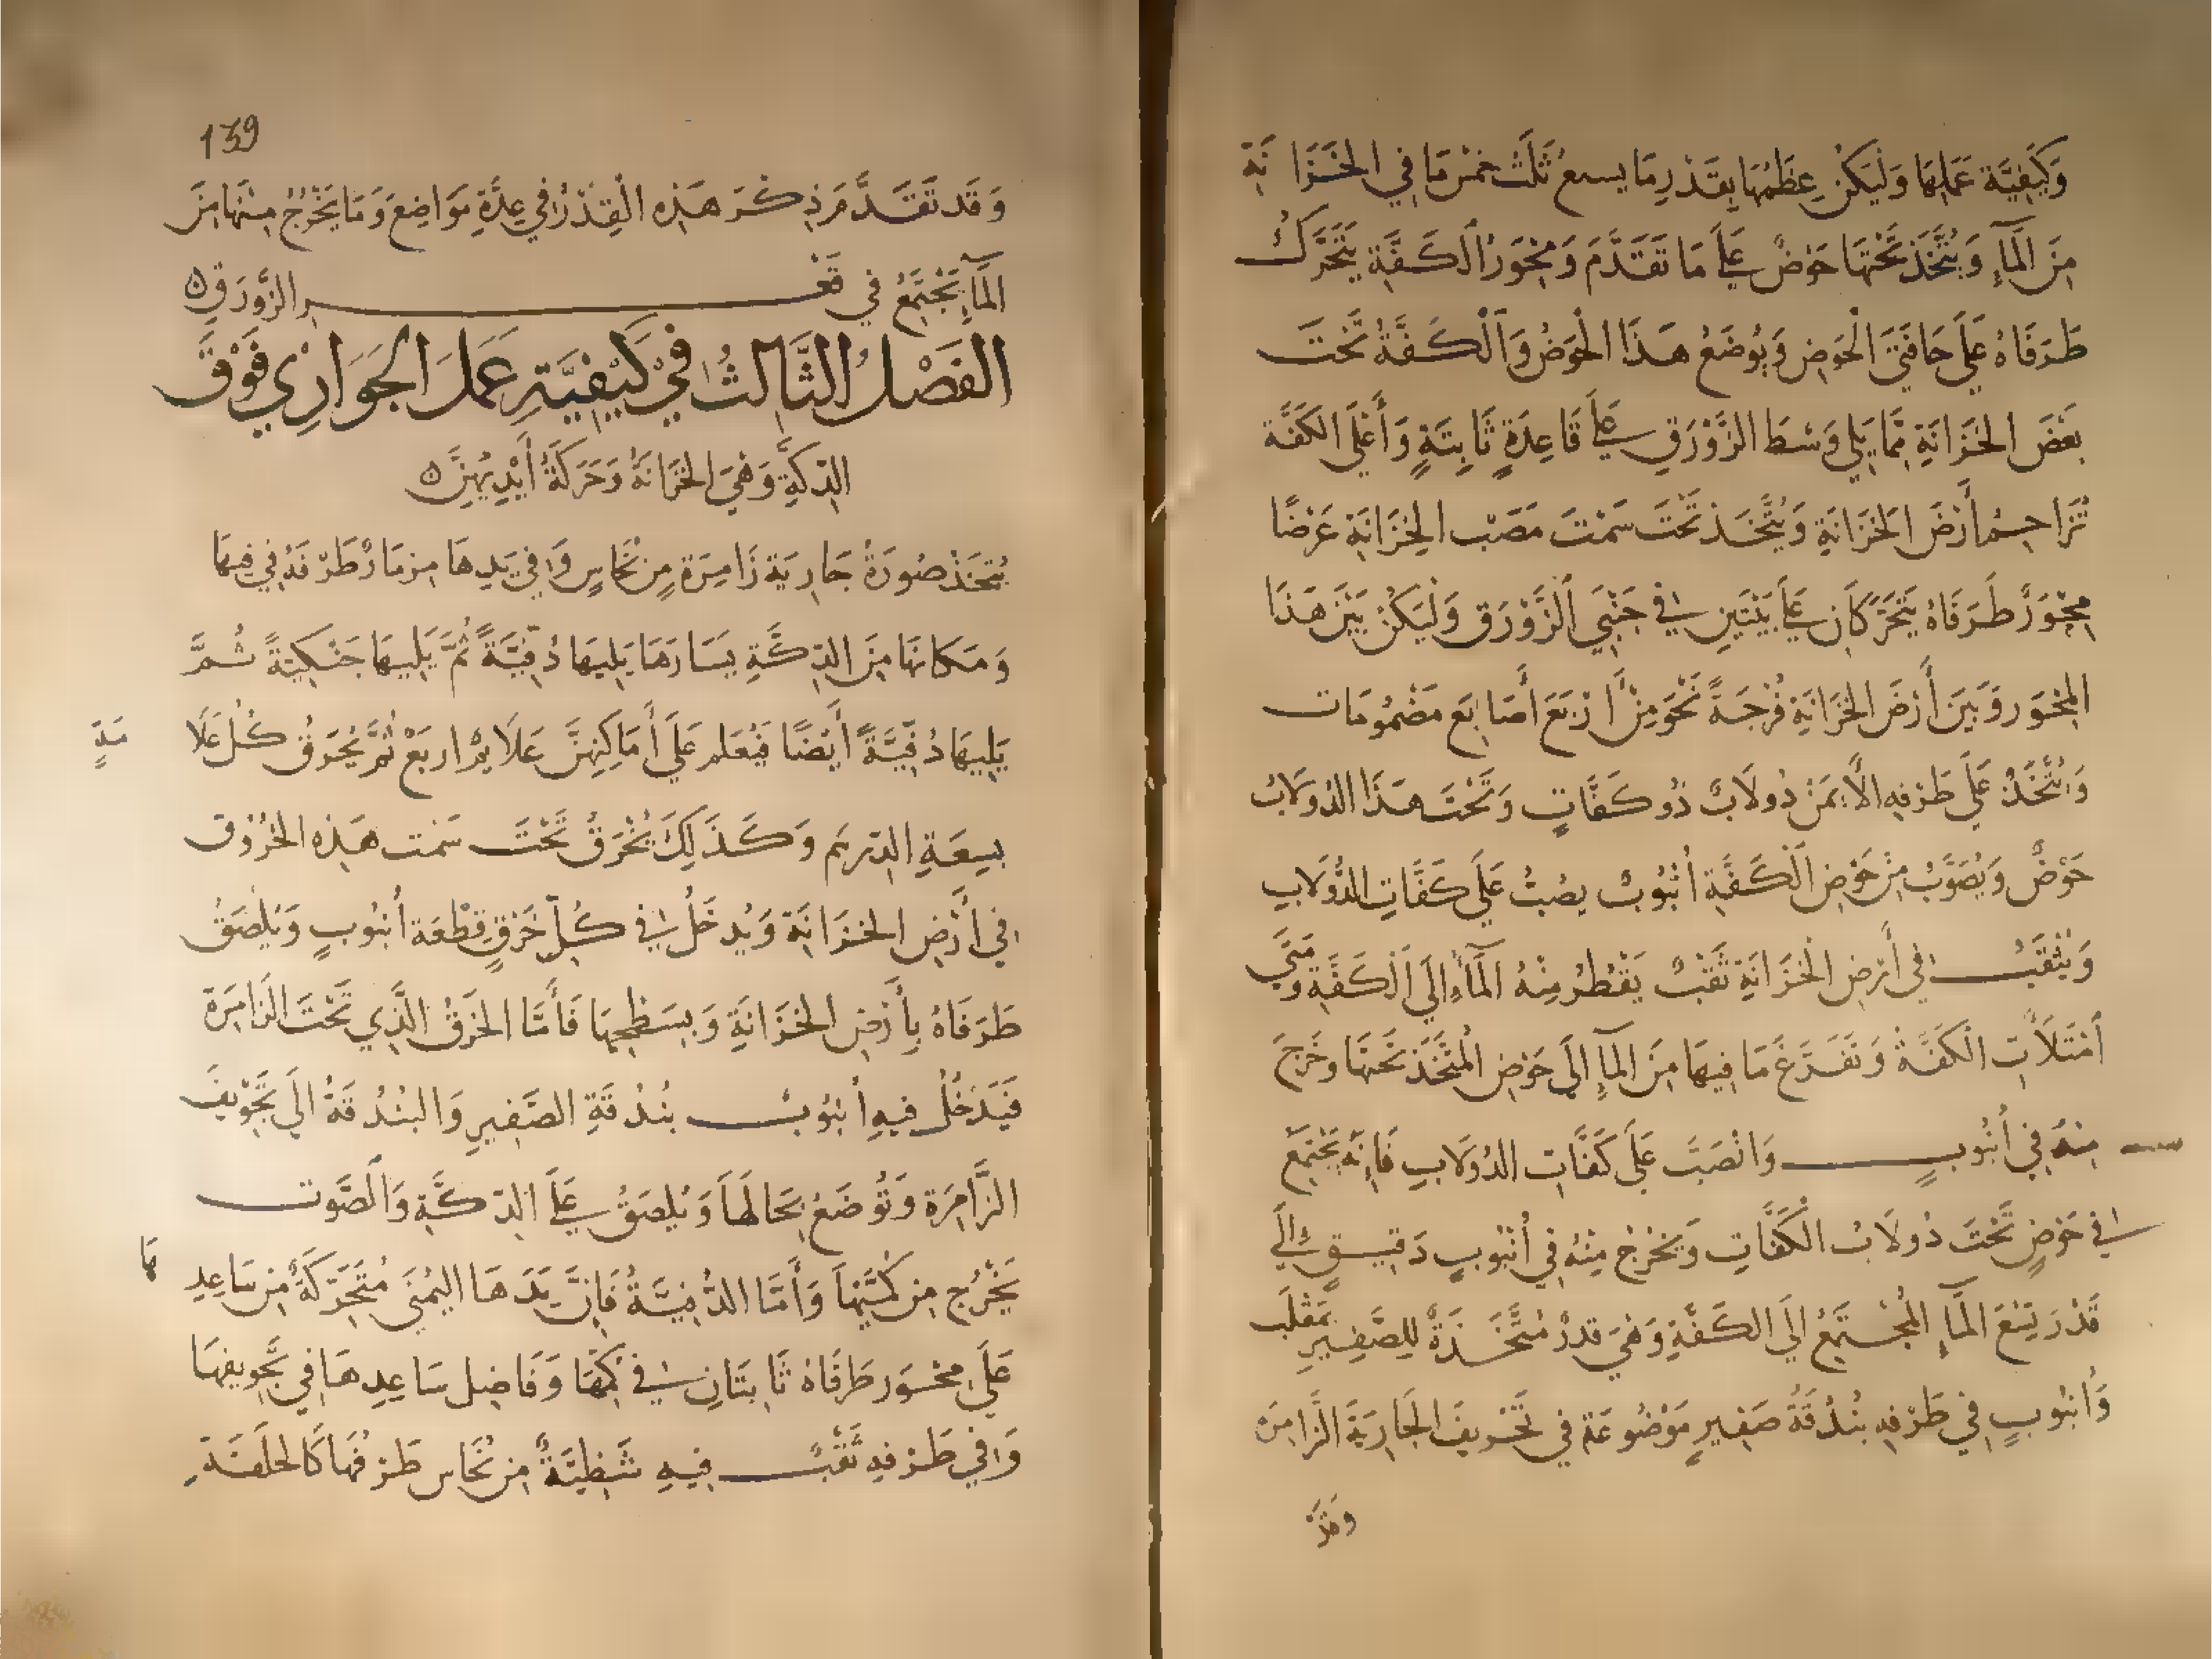 وَكَيْفِيَّة عَمَلِهَا وَلْيَكُنْ عِظَمُهَا بِقَدْرِ مَا يسع ثُلْثَ خمْسِ مَا فِي الخَزَانَة
مِنَ المَآءِ وَيُتَّخَذ تَحْتَهَا حَوْضٌ عَلَى مَا تَقَدَّمَ وَمِحْوَرُ الكَفَّةِ يَتَحَرَّكُ
طَرَفَاهُ عَلَى حَافَتَيِ الحَوضِ وَيُوضَعُ هَذَا الحَوضُ وَالكَفَّةُ تَحْتَ
بَعْضِ الخَزَانَةِ مِمَّا يَلِي وَسْطَ الزَّوْرَقِ عَلَى قَاعِدَةٍ ثَابِتَةٍ وَأَعْلَى الكَفَّة
تُزَاحِمُ أَرْضَ الخَزَانَةِ وَيُتَّخَذ تَحْتَ سَمْتَ مَصَبّ الخِزَانَةِ عَرْضًا
مِحْوَرٌ طَرَفَاهُ يَتَحَرَّكَانِ عَلَى بَيْتَيْنِ فِي جَنْبَيِ الزَّوْرَقِ وَلْيَكُنْ بَيْنَ هَذَا
المِحْوَرِ وَبَيْنَ أَرْضِ الخَزَانَةِ فُرْجَةً نَحْوَ مِنْ أَرْبَعَ أَصَابِعَ مَضْمُومَات
وَيُتَّخَذُ عَلَى طَرْفِهِ الأَيْمَنِ دُولَابٌ ذُو كَفَّاتٍ وَتَحْتَ هَذَا الدُّولَابُ
حَوْضٌ وَيُصَوَّبُ مِنْ حَوْضِ الكَفَّةِ أُنْبُوبٌ يصُبُّ عَلَى كَفَّاتِ الدُّولَابِ
وَيُثْقَبُ فِي أَرْضِ الخَزَانَةِ ثَقْبٌ يَقْطُرُ مِنْهُ المَآءُ إِلَى الكَفَّةِ وَمَتَى
امْتَلَأَتِ الكَفَّةُ وَتَفَرَّغَ مَا فِيهَا مِنَ المَآءِ إِلَى حَوْضِ المُتَّخَذِ تَحْتَهَا وَخَرَجَ
مِنْهُ فِي أُنْبُوبٍ وَانْصَبَّ عَلَى كَفَّاتِ الدُولَابِ فَإِنَّهُ يَجْتَمِعُ
فِي حَوْضٍ تَحْتَ دُولَابُ الكَفَّاتِ وَيَخْرُجُ مِنْهُ فِي أُنْبُوبٍ دَقِيقٍ إِلَى
قَدْرِ يَتْبَعَ المَآءِ المُجْتَمِعُ إِلَى الكَفَّةِ وَهِيَ قِدْرٌ مُتَّخَذَةٌ لِلصَّفِيرِ بِمَقْلَب
وَأُنْبُوبٍ فِي طَرْفِهِ بُنْدُقَةُ صَفِيرٍ مَوْضُوعَة فِي تَجْوِيفِ الجَارِيَةِ الزَّامِرَه
وَقَدْ
139
وَقَد تَقَدَّمَ ذِكْرَ هَذِهِ القِدْرُ فِي عِدَّةِ مَوَاضِعَ وَمَا يَخْرُجُ مِنْهَا مِنَ
المَآءِ يَجْتَمِعُ فِي قَعْرِ الزَّوْرَقِ ۞
الفَصْلُ الثَّالِثُ فِي كَيْفِيَّةِ عَمَلِ الجَوَارِي فَوْقَ
الدِّكَّةِ وَهِيَ الخَزَانَةُ وَحَرَكَةُ أَيْدِيهِنَّ ۞
يُتَّخَذُ صُورَةُ جَارِيَة زَامِرَة مِنْ نُحَاسٍ وَفِي يَدِهَا مِزمَارٌ طَرْفهُ فِي فِيهَا
وَمَكَانهَا مِنَ الدِّكَّةِ يَسَارَهَا يَلِيهَا دُفِّيَّةً ثُمَّ يَلِيهَا جَنْكِيَّةً ثُمَّ
يَلِيهَا دُفِّيَّةً أَيْضًا فَيُعلم عَلَى أَمَاكِنِهِنَّ عَلَايِمُ اربَعْ ثُمَّ يُخْرَقُ كُلّ عَلَامَةٍ
بِسِعَةِ الدّرهَمِ وَكَذَلِكَ يُخْرَقُ تَحْتَ سَمْت هَذِهِ الخُرُوق
فِي أَرْضِ الخَزَانَةِ وَيُدخَلُ فِي كُلِّ خَرْقٍ قِطْعَة أُنْبُوبٍ وَيُلْصَقُ
طَرَفَاهُ بِأَرْضِ الخَزَانَةِ وَبِسَطْحِهَا فَأَمَّا الخَرْقُ الَّذِي تَحْتَ الزَّامِرَة
فَيَدْخُلُ فِيهِ أُنْبُوبُ بُنْدُقَةِ الصَّفِيرِ وَالبُنْدُقَةُ إِلَى تَجْوِيفِ
الزَّامِرَةِ وَتُوضَعُ بِحَالِهَا وَيُلصَقُ عَلَى الدِّكَّةِ وَالصَّوت
يَخْرُجُ مِن كُمَّيْهَا وَأَمَّا الدُّفِيَّةُ فَإِنَّ يَدَهَا اليُمْنَى مُتَحَرِّكَةٌ مِنْ سَاعِدِهَا
عَلَى مِحْوَر طَرفَاهُ ثَابِتَانِ فِي كُمِّهَا وَفَاضِل سَاعِدِهَا فِي تَجْوِيفِهَا
وَفِي طَرْفِهِ ثَقْبٌ فِيهِ شَظِيَّةٌ مِن نُحَاس طَرْفُهَا كَالحَلقَة